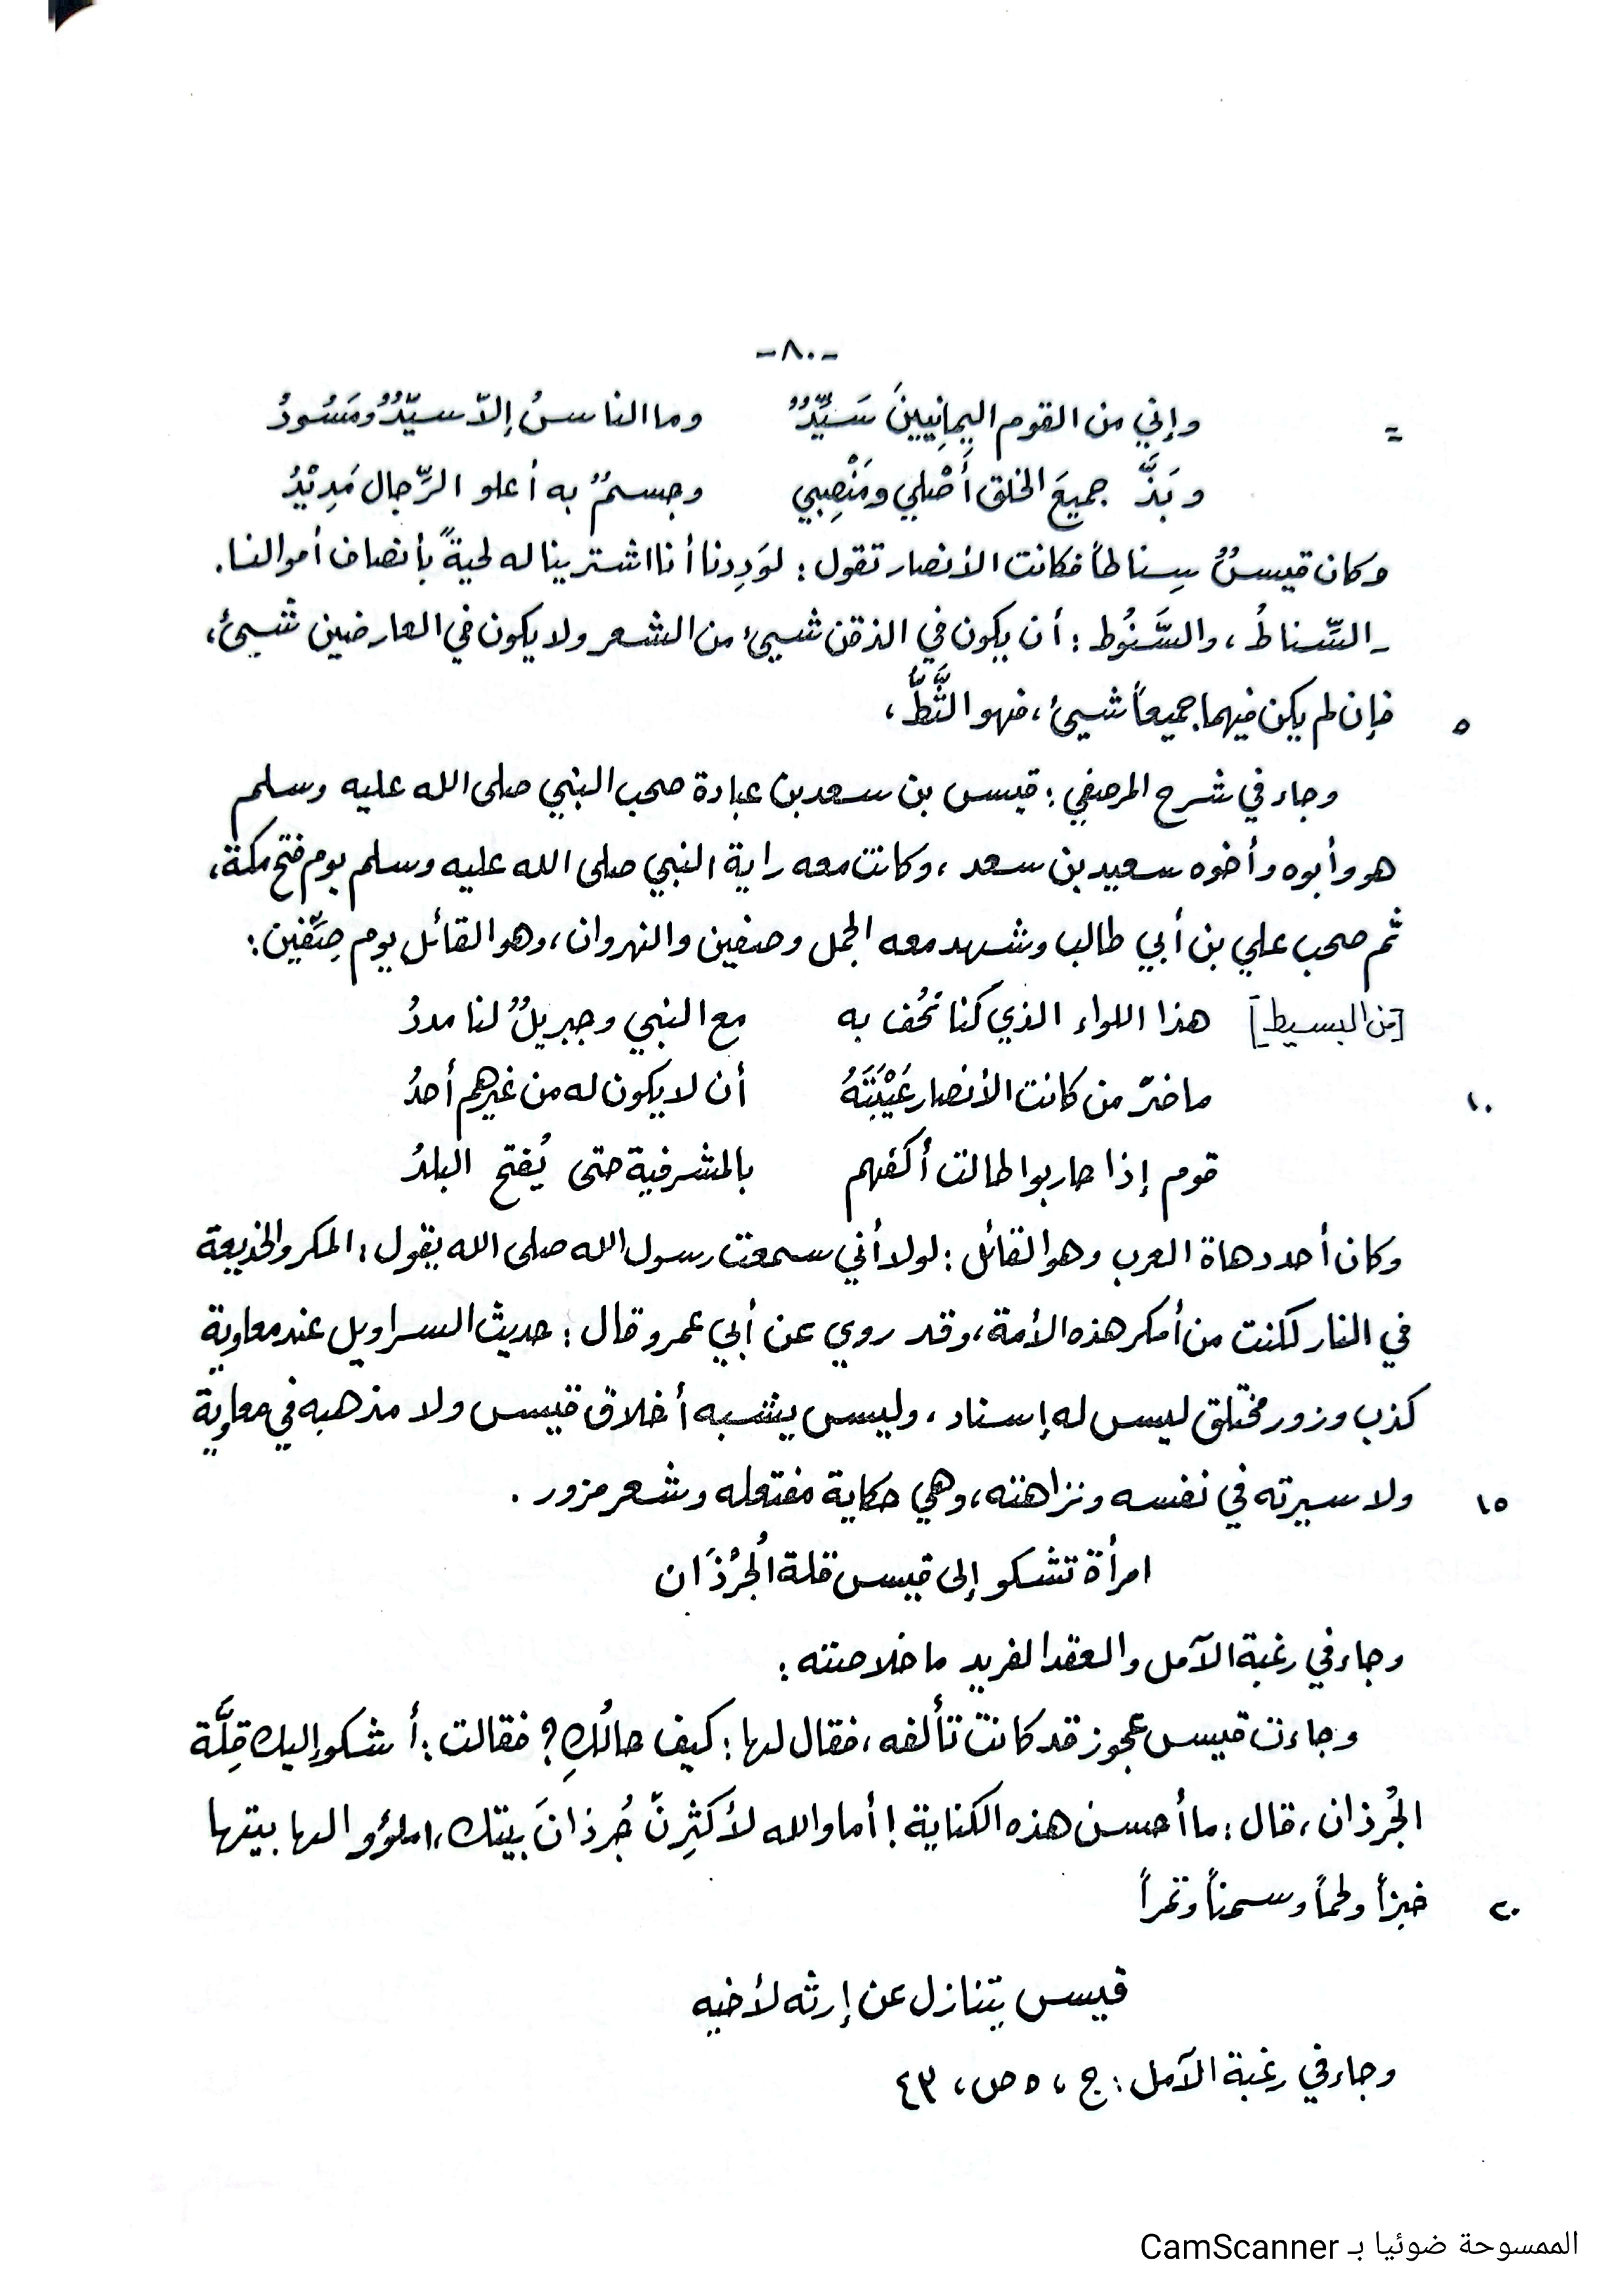 -٨٠-
= وإني من القوم اليمانِيينَ سَيِّدٌ وما الناسُ إلاّ سيّدٌ ومَسُودُ
وبَذَّ جميعَ الخلق أَصْلي ومَنْصِبي وجسمٌ به أعلو الرِّجال مَدِيْدُ
وكان قيسٌ سِناطاً فكانت الأنصار تقول: لوَدِدنا أنا اشترينا له لحيةً بأنصاف أموالنا.
ـ السِّناطُ، والسَّنُوط: أن يكون في الذقن شيئ من الشعر ولا يكون في العارضين شيئ،
٥ فإن لم يكن فيهما جميعاً شيئ، فهو الثَّطُّ،
وجاء في شرح المرصفي: قيس بن سعد بن عبادة صحب النبي صلى الله عليه وسلم
هو وأبوه وأخوه سعيد بن سعد، وكانت معه راية النبي صلى الله عليه وسلم يوم فتح مكة،
ثم صحب علي بن أبي طالب وشهد معه الجمل وصفين والنهروان، وهو القائل يوم صِفّين:
[من البسيط] هذا اللواء الذي كنا نحُف به مع النبي وجبريلٌ لنا مددُ
١٠ ما ضرّ من كانت الأنصار عَيْبَتَهُ أن لا يكون له من غيرهم أحدُ
قوم إذا حاربوا طالت أكفهم بالمشرفية حتى يُفتح البلدُ
وكان أحد دهاة العرب وهو القائل: لولا أني سمعت رسول الله صلى الله يقول: المكر والخديعة
في النار لكنت من أمكر هذه الأمة، وقد روي عن أبي عمرو قال: حديث السراويل عند معاوية
كذب وزور مختلق ليس له إسناد، وليس يشبه أخلاق قيس ولا مذهبه في معاوية
١٥ ولا سيرته في نفسه ونزاهته، وهي حكاية مفتعله وشعر مزور.
امرأة تشكو إلى قيس قلة الجُرْذَان
وجاء في رغبة الآمل والعقد الفريد ما خلاصته:
وجاءت قيس عجوز قد كانت تألفه، فقال لها: كيف حالُكِ؟ فقالت: أشكو إليك قِلَّة
الجُرذان، قال: ما أحسن هذه الكناية! أما والله لأكثِرنّ جُرذانَ بيتك، املؤوا لها بيتها
٢٠ خبزاً ولحماً وسمناً وتمراً
قيس يتنازل عن إرثه لأخيه
وجاء في رغبة الآمل: ج، ٥ ص، ٤٣
الممسوحة ضوئيا بـ CamScanner